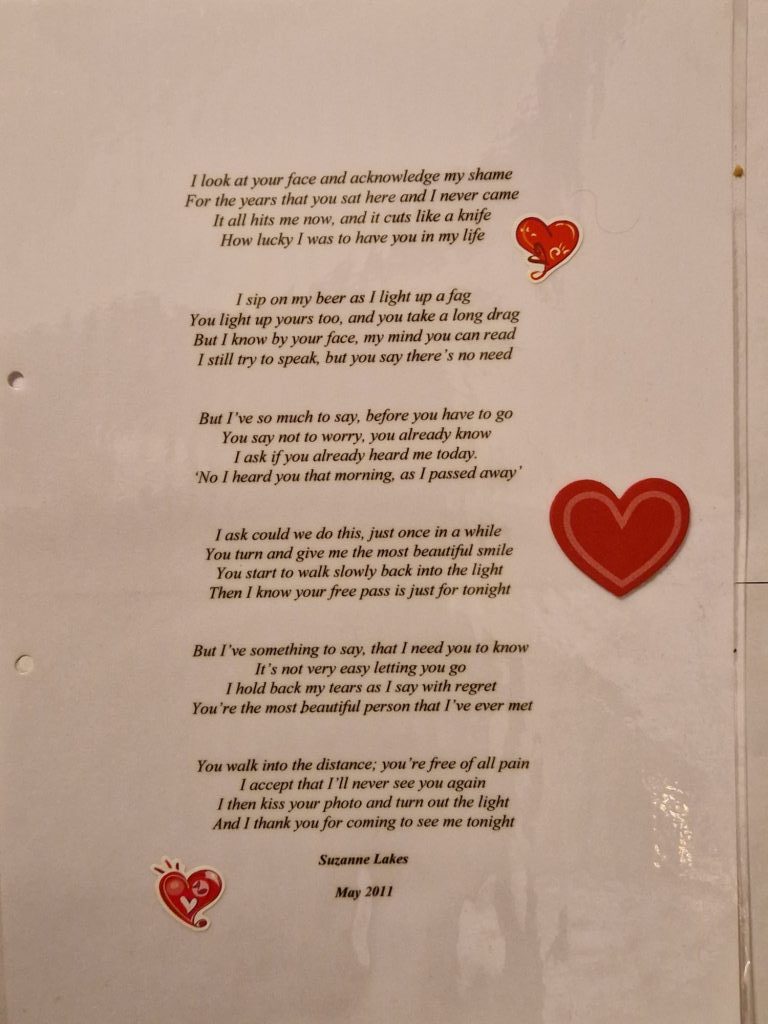 I look at your face and acknowledge my shame
For the years that you sat here and I never came
It all hits me now, and it cuts like a knife
How lucky I was to have you in my life
I sip on my beer as I light up a fag
You light up yours too, and you take a long drag
But I know by your face, my mind you can read
I still try to speak, but you say there's no need
But I've so much to say, before you have to go
You say not to worry, you already know
I ask if you already heard me today.
'No I heard you that morning, as I passed away'
I ask could we do this, just once in a while
You turn and give me the most beautiful smile
You start to walk slowly back into the light
Then I know your free pass is just for tonight
But I've something to say, that I need you to know
It's not very easy letting you go
I hold back my tears as I say with regret
You're the most beautiful person that I've ever met
You walk into the distance; you're free of all pain
I accept that I'll never see you again
I then kiss your photo and turn out the light
And I thank you for coming to see me tonight
Suzanne Lakes
May 2011